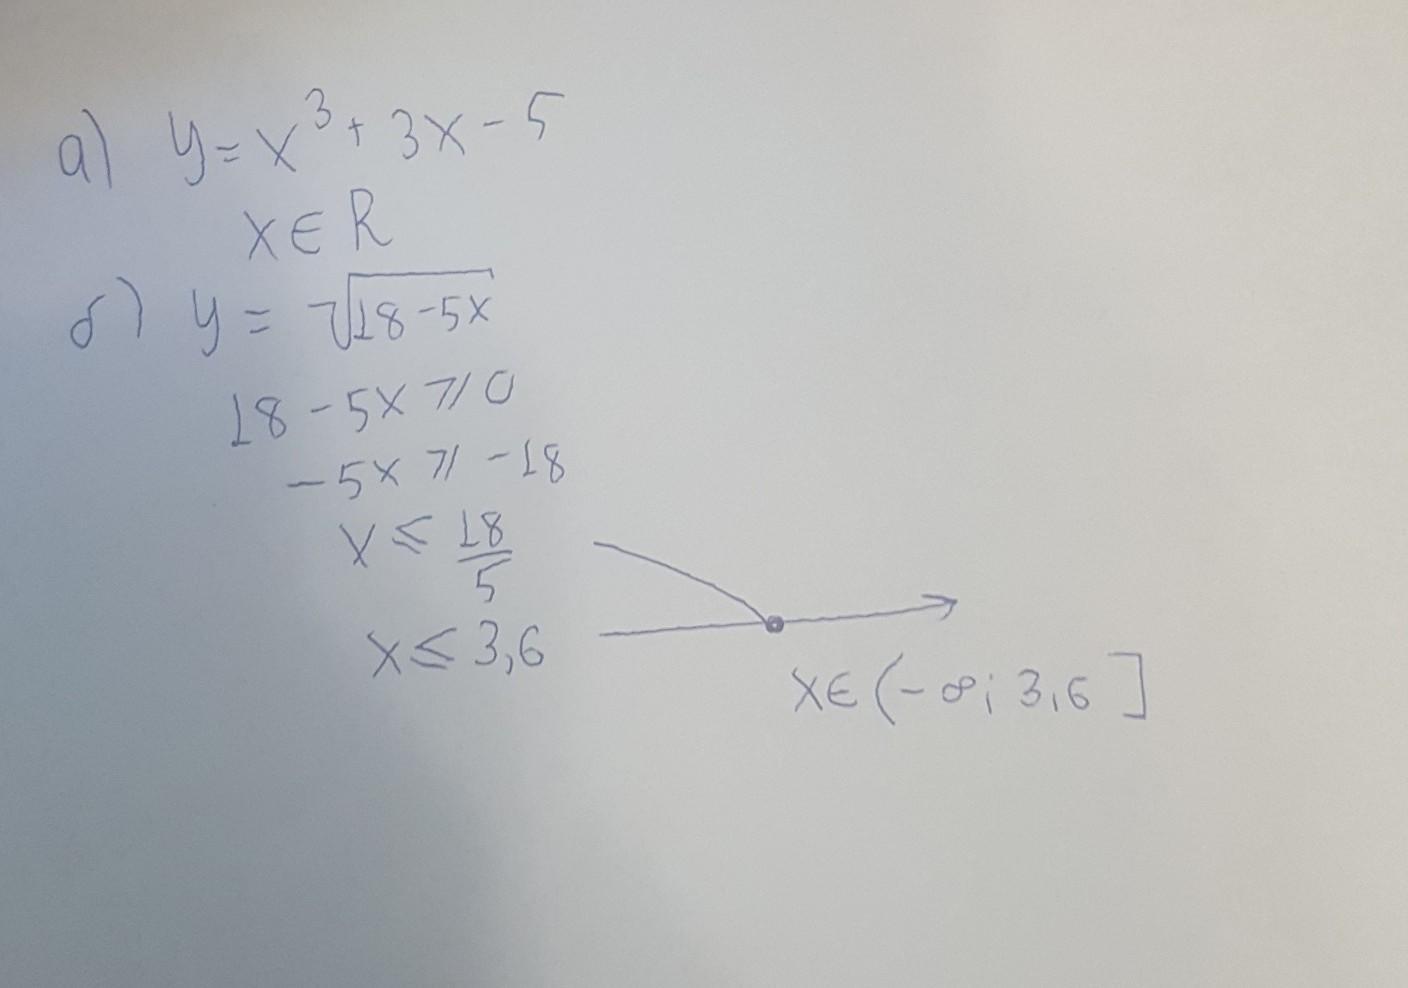 а) y = x³ + 3x - 5
x ∈ R
б) y = √(18 - 5x)
18 - 5x ⩾ 0
- 5x ⩾ - 18
x ⩽ 18/5
x ⩽ 3,6
x ∈ (- ∞; 3,6]